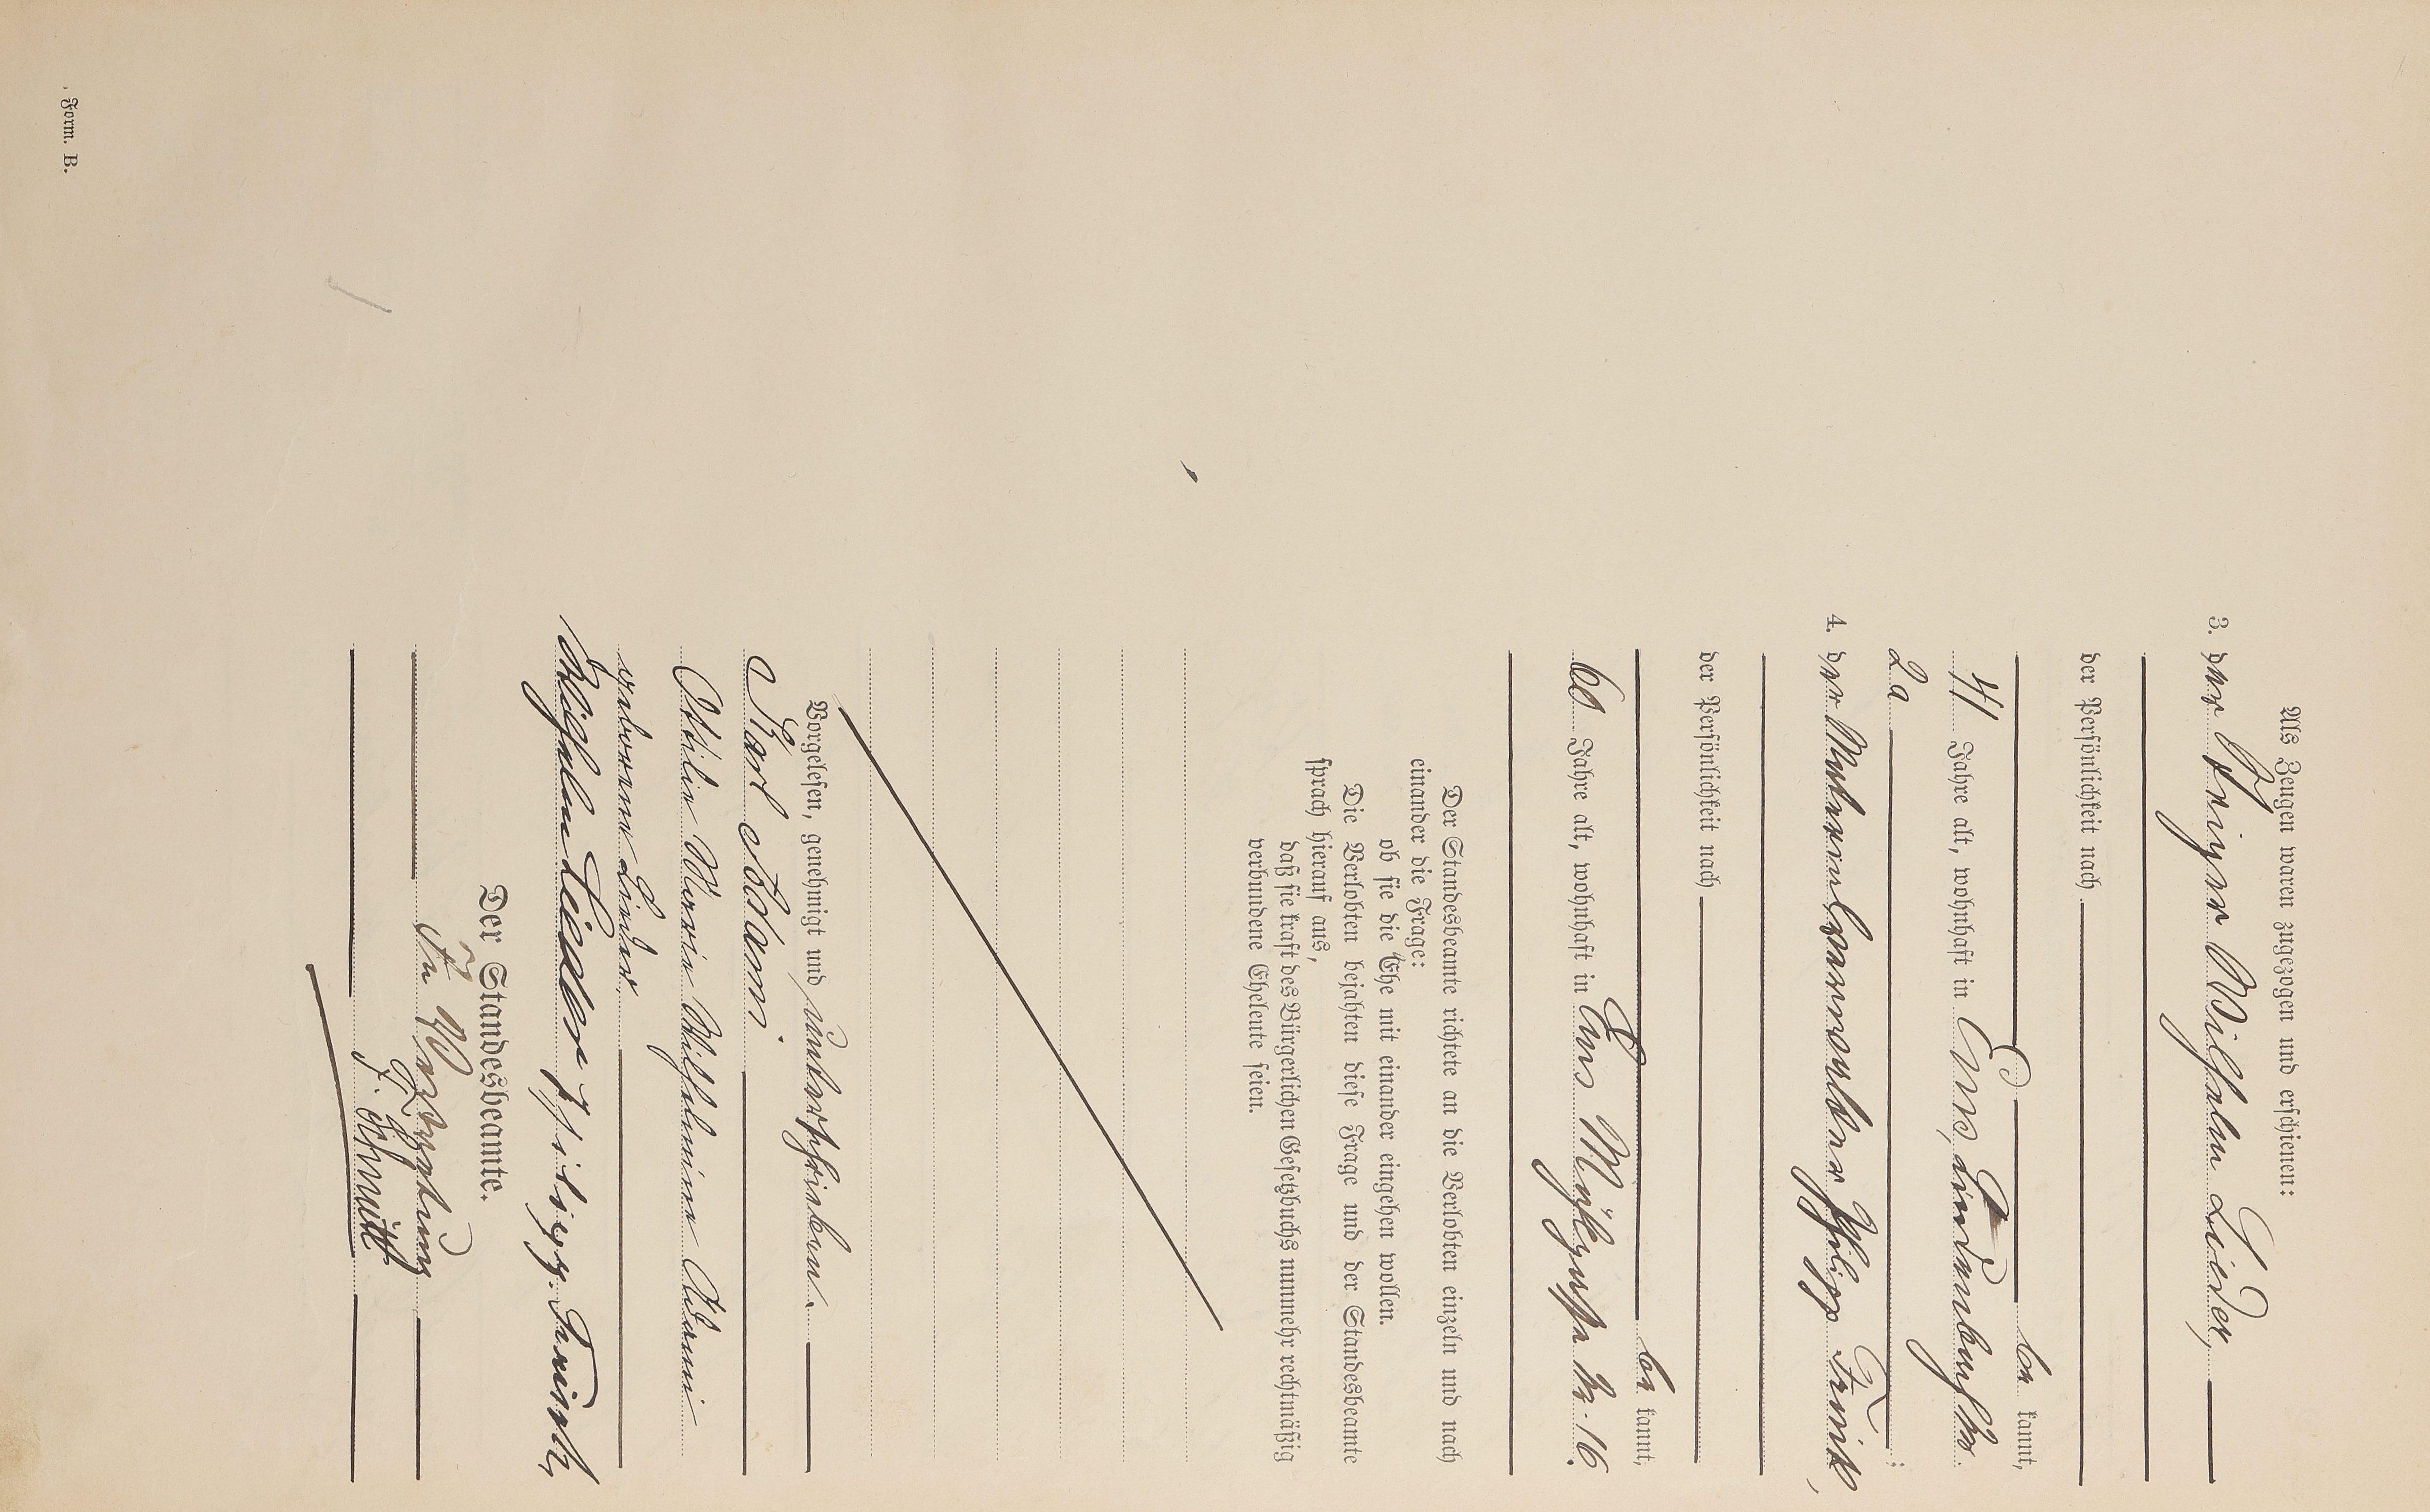 Als Zeugen waren zugezogen und erschienen:
3. der Wilhelm Linder,
der Persönlichkeit nach
be kannt,
41 Jahre alt, wohnhaft in Ems, Lindenbach No.
2a ;
4. der Philipp
der Persönlichkeit nach
be kannt,
60 Jahre alt, wohnhaft in Ems No. 16.
Der Standesbeamte richtete an die Verlobten einzeln und nach
einander die Frage:
ob sie die Ehe mit einander eingehen wollen.
Die Verlobten bejahten diese Frage und der Standesbeamte
sprach hierauf aus,
daß sie kraft des Bürgerlichen Gesetzbuchs nunmehr rechtmäßig
verbundene Eheleute seien.
Vorgelesen, genehmigt und unterschrieben.
Karl Adami.
Ottilie Marie Wilhelmine Adami
geborene Linder
Wilhelm Linder Philipp
Der Standesbeamte.
In Vertretung
J. Schmitt
Form. B.